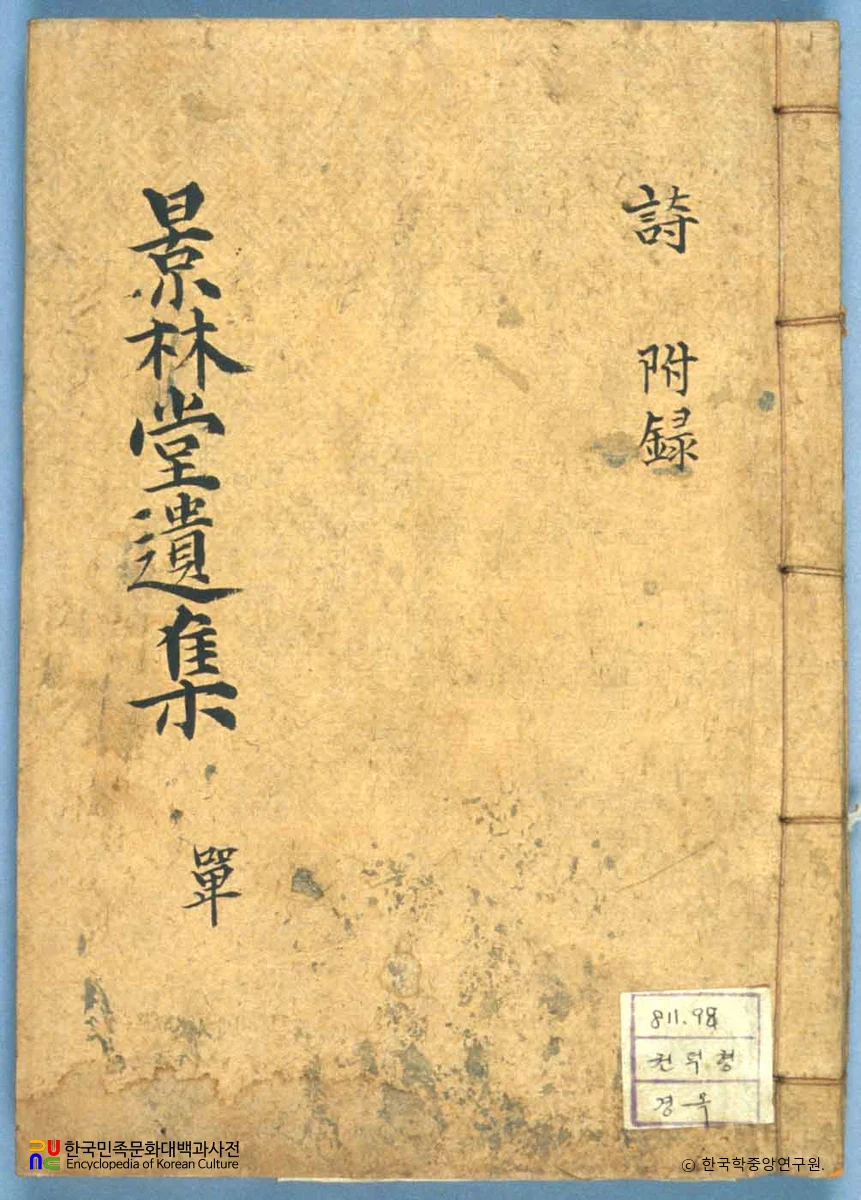 詩 附録
景林堂遺集 單
811.98
권덕형
경옥
한국민족문화대백과사전
Encyclopedia of Korean Culture
ⓒ 한국학중앙연구원.